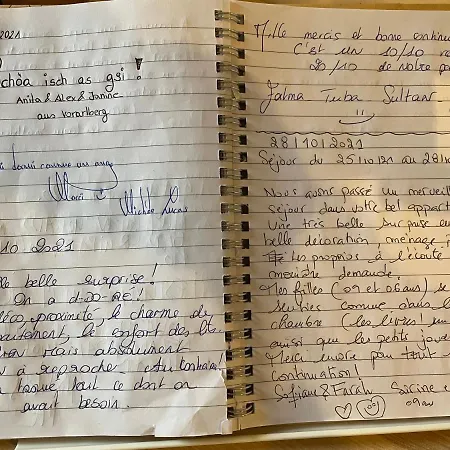 2021
schöa isch as gsi!
Anita & Alex & Janine
aus Vorarlberg
dormi comme un ange
Merci
Michèle Lucas
10 2021
lle belle surprise!
On a a-do-ré!
déco, proximité, le charme de
l'appartement, le confort des lits.
rien mais absolument
n à reprocher, au contraire!
a trouvé tout ce dont on
avait besoin.
Mille mercis et bonne continu
C'est un 10/10 
20/10 de notre pa
Fatma Tuba Sultan
28/10/2021
Séjour du 25/10/21 au 28/10
Nous avons passé un merveil
séjour dans votre bel appart
une très belle surprise
belle décoration, ménage,
Les proprios à l'écoute
moindre demande.
Mes filles (09 et 06 ans) se
senties comme dans
chambre (les livres!
ainsi que les petits joue
Merci encore pour tout
continuation!
Sofiane & Farah Sirine
09 an